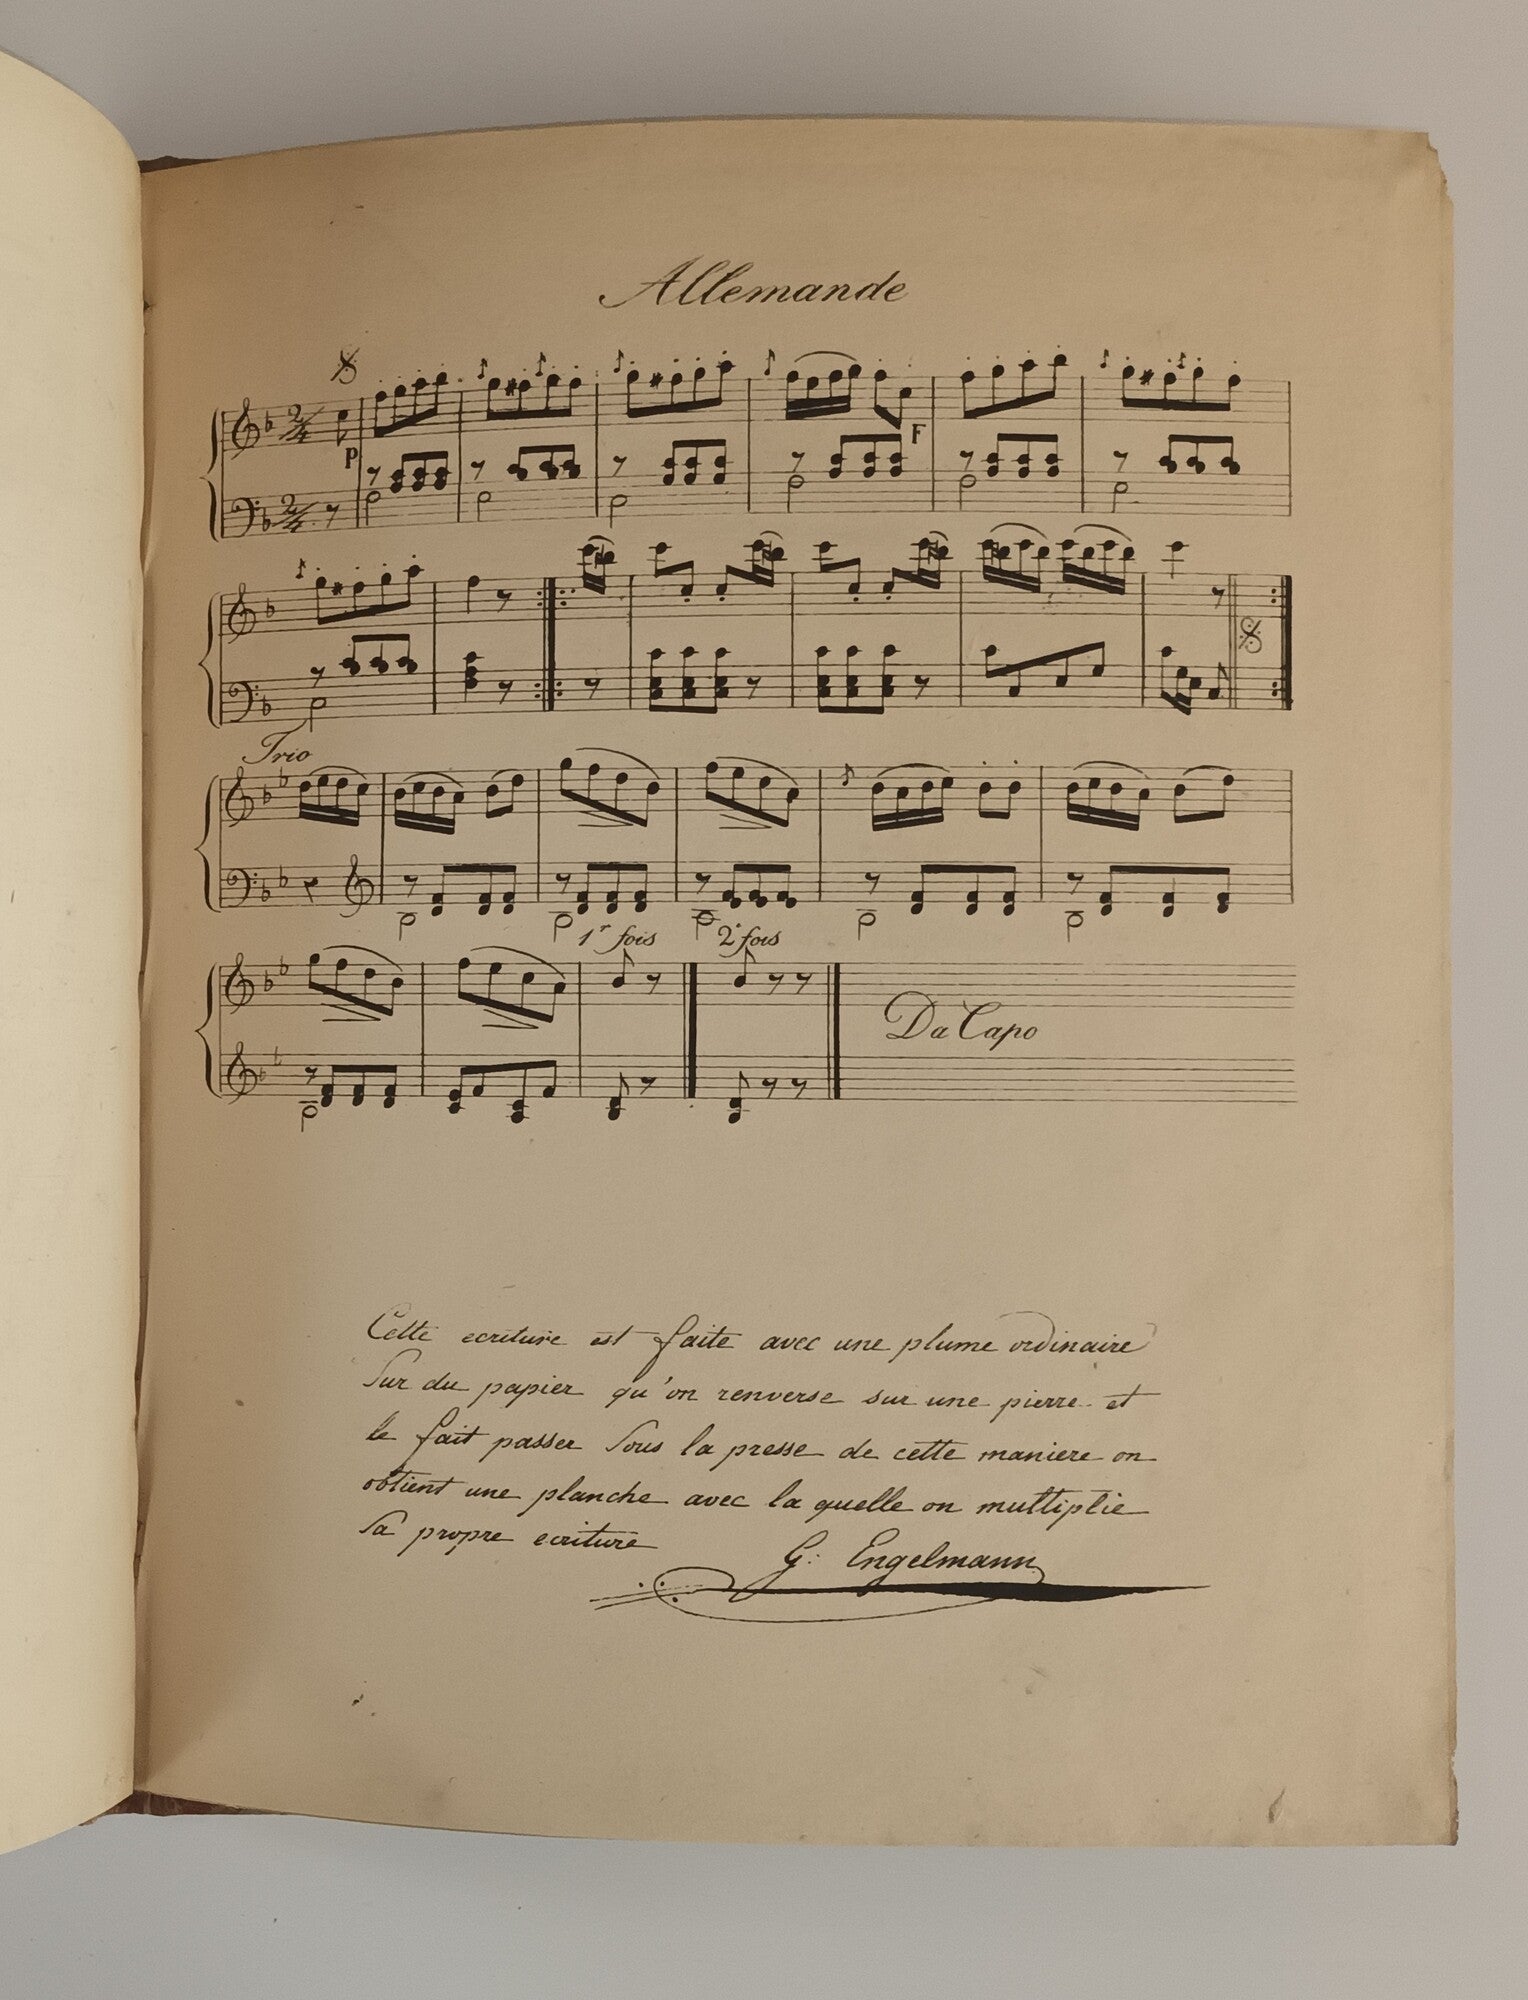 Allemande
P
F
Trio
1r fois 2e fois
Da Capo
Cette ecriture est faite avec une plume ordinaire
Sur du papier qu'on renverse sur une pierre et
le fait passer Sous la presse de cette maniere on
obtient une planche avec la quelle on multiplie
Sa propre ecriture
G: Engelmann